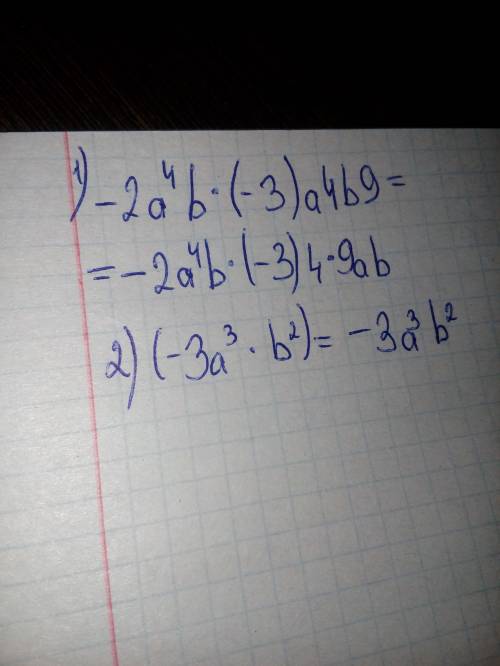 1) -2a⁴b·(-3)a4b9=
=-2a⁴b·(-3)4·9ab
2) (-3a³·b²)=-3a³b²